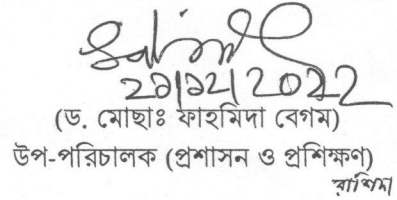 ২১/১২/2022
(ড. মোছাঃ ফাহমিদা বেগম)
উপ-পরিচালক (প্রশাসন ও প্রশিক্ষণ)